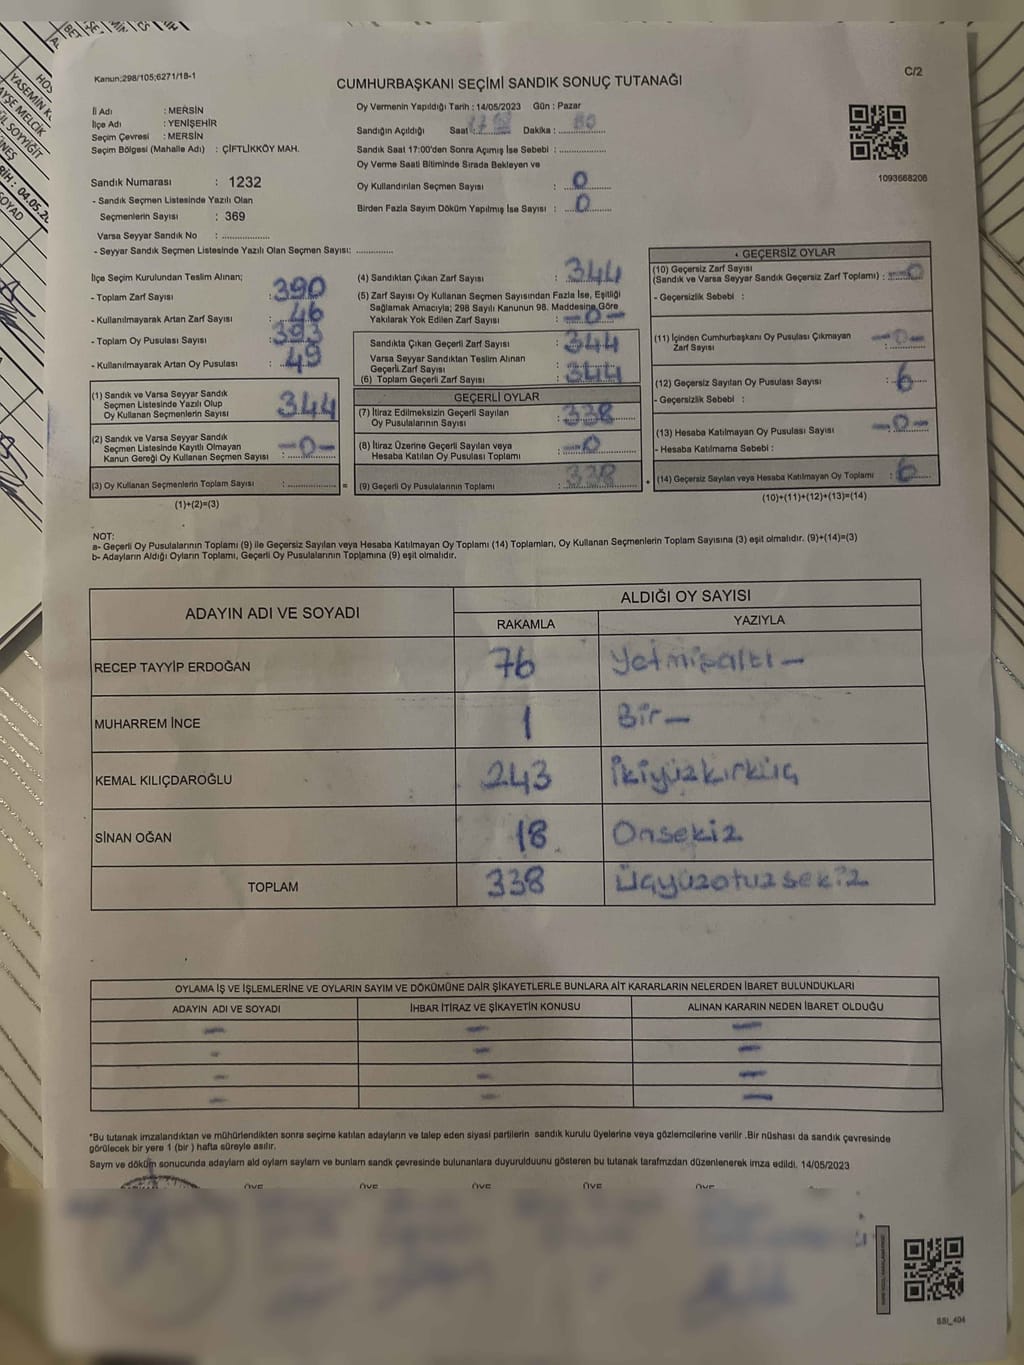 Kanun:298/105;6271/18-1
CUMHURBAŞKANI SEÇİMİ SANDIK SONUÇ TUTANAĞI
C/2
İl Adı : MERSİN
İlçe Adı : YENİŞEHİR
Seçim Çevresi : MERSİN
Seçim Bölgesi (Mahalle Adı) : ÇİFTLİKKÖY MAH.
Oy Vermenin Yapıldığı Tarih : 14/05/2023 Gün : Pazar
Sandığın Açıldığı Saat : Dakika :
Sandık Saat 17:00'den Sonra Açımış İse Sebebi :
Oy Verme Saati Bitiminde Sırada Bekleyen ve
Oy Kullandırılan Seçmen Sayısı : 0
Birden Fazla Sayım Döküm Yapılmış İse Sayısı : 0
1093668206
Sandık Numarası : 1232
- Sandık Seçmen Listesinde Yazılı Olan
Seçmenlerin Sayısı : 369
Varsa Seyyar Sandık No :
- Seyyar Sandık Seçmen Listesinde Yazılı Olan Seçmen Sayısı:
İlçe Seçim Kurulundan Teslim Alınan;
- Toplam Zarf Sayısı : 390
- Kullanılmayarak Artan Zarf Sayısı : 46
- Toplam Oy Pusulası Sayısı : 393
- Kullanılmayarak Artan Oy Pusulası : 49
(1) Sandık ve Varsa Seyyar Sandık
Seçmen Listesinde Yazılı Olup
Oy Kullanan Seçmenlerin Sayısı 344
(2) Sandık ve Varsa Seyyar Sandık
Seçmen Listesinde Kayıtlı Olmayan
Kanun Gereği Oy Kullanan Seçmen Sayısı : -0-
(3) Oy Kullanan Seçmenlerin Toplam Sayısı : =
(1)+(2)=(3)
(4) Sandıktan Çıkan Zarf Sayısı : 344
(5) Zarf Sayısı Oy Kullanan Seçmen Sayısından Fazla İse, Eşitliği
Sağlamak Amacıyla; 298 Sayılı Kanunun 98. Maddesine Göre
Yakılarak Yok Edilen Zarf Sayısı : -0-
Sandıkta Çıkan Geçerli Zarf Sayısı : 344
Varsa Seyyar Sandıktan Teslim Alınan
Geçerli Zarf Sayısı
(6) Toplam Geçerli Zarf Sayısı : 344
GEÇERLİ OYLAR
(7) İtiraz Edilmeksizin Geçerli Sayılan
Oy Pusulasının Sayısı : 338
(8) İtiraz Üzerine Geçerli Sayılan veya
Hesaba Katılan Oy Pusulası Toplamı : -0
(9) Geçerli Oy Pusulalarının Toplamı : 338 +
GEÇERSİZ OYLAR
(10) Geçersiz Zarf Sayısı
(Sandık ve Varsa Seyyar Sandık Geçersiz Zarf Toplamı) : -0
- Geçersizlik Sebebi :
(11) İçinden Cumhurbaşkanı Oy Pusulası Çıkmayan
Zarf Sayısı : -0-
(12) Geçersiz Sayılan Oy Pusulası Sayısı : 6
- Geçersizlik Sebebi :
(13) Hesaba Katılmayan Oy Pusulası Sayısı : -0-
- Hesaba Katılmama Sebebi :
(14) Geçersiz Sayılan veya Hesaba Katılmayan Oy Toplamı : 6
(10)+(11)+(12)+(13)=(14)
NOT:
a- Geçerli Oy Pusulalarının Toplamı (9) ile Geçersiz Sayılan veya Hesaba Katılmayan Oy Toplamı (14) Toplamları, Oy Kullanan Seçmenlerin Toplam Sayısına (3) eşit olmalıdır. (9)+(14)=(3)
b- Adayların Aldığı Oyların Toplamı, Geçerli Oy Pusulalarının Toplamına (9) eşit olmalıdır.
ADAYIN ADI VE SOYADI
ALDIĞI OY SAYISI
RAKAMLA YAZIYLA
RECEP TAYYİP ERDOĞAN 76 Yetmişaltı –
MUHARREM İNCE 1 Bir –
KEMAL KILIÇDAROĞLU 243 İkiyüzkırküç
SİNAN OĞAN 18 Onsekiz
TOPLAM 338 Üçyüzotuzsekiz
OYLAMA İŞ VE İŞLEMLERİNE VE OYLARIN SAYIM VE DÖKÜMÜNE DAİR ŞİKAYETLERLE BUNLARA AİT KARARLARIN NELERDEN İBARET BULUNDUKLARI
ADAYIN ADI VE SOYADI İHBAR İTİRAZ VE ŞİKAYETİN KONUSU ALINAN KARARIN NEDEN İBARET OLDUĞU
– – –
– – –
– – –
– – –
*Bu tutanak imzalandıktan ve mühürlendikten sonra seçime katılan adayların ve talep eden siyasi partilerin sandık kurulu üyelerine veya gözlemcilerine verilir .Bir nüshası da sandık çevresinde
görülecek bir yere 1 (bir ) hafta süreyle asılır.
Sayım ve döküm sonucunda adayların ald oyların sayların ve bunların sandk çevresinde bulunanlara duyurulduunu gösteren bu tutanak tarafmzdan düzenlenerek imza edildi. 14/05/2023
ÜYE ÜYE ÜYE ÜYE ÜYE
SSI_404